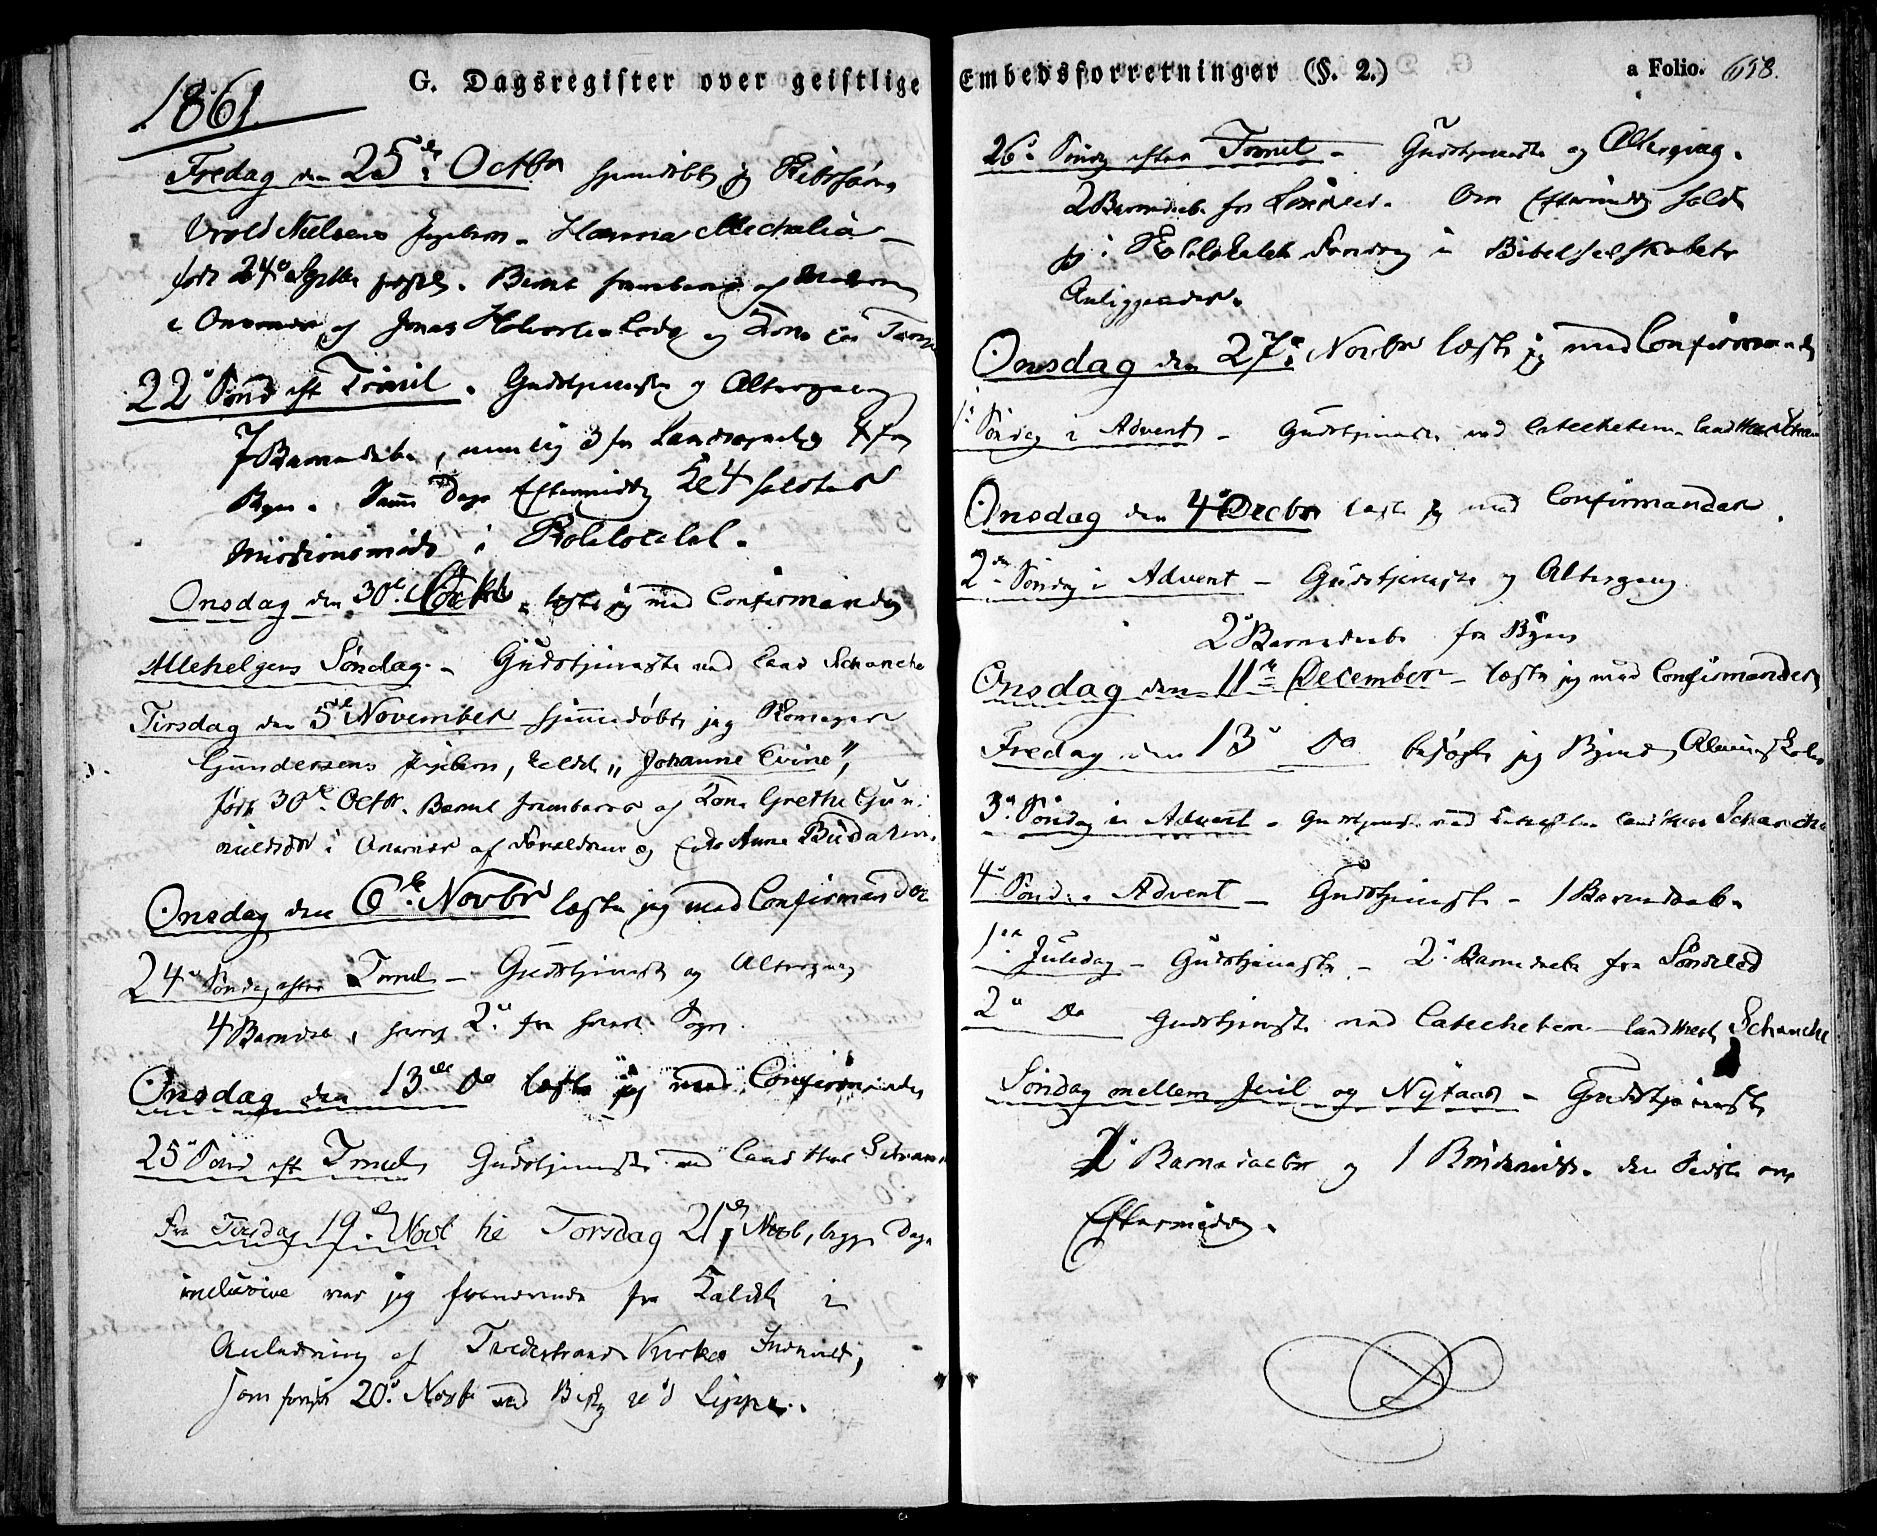 G. Dagsregister over geistlige
1861.
Fredag den 25de Octbr hjemdøbte jeg
Nielsens Pigebarn - Hanna Michalia -
født 24de Septbr Barnet frembaaret af
i af Jonas og
22de Sønd. eft Trinit. Gudstjeneste og Altergang
7 Barnedaab, nemlig 3 fra Landsognet og 4 fra
Byen. Samme Dags Eftermiddag Kl 4 holdtes
Missionsmøde i Skolelocalet.
Onsdag den 30te læste jeg med Confirmander
Allehelgens Søndag - Gudstjeneste ved Cand Schanche
Tirsdag den 5te November hjemmedøbte jeg
Gundersens Pigebarn, kaldet "Johanne Evine",
født 30te Octbr. Barnet frembaaret af Grethe
i af Forældrene og Anne
Onsdag den 6te Novbr læste jeg med Confirmander
24de Søndag efter Trinit. - Gudstjeneste og Altergang
4 Barnedaab, hvoraf 2 fra hvert Sogn.
Onsdag den 13de Do læste jeg med Confirmander
25de Sønd eft Trinit. Gudstjeneste ved Cand Herr Schanche
Fra Tirsdag 19de Novb til Torsdag 21de Novb, begge Dage
inclusive var jeg fraværende fra Kaldet i
Anledning af Tvedestrands Kirkes Indvielse,
som foregik 20de Novbr ved Biskop
Embedsforretninger (§. 2.)
a Folio. 658.
26de Søndag efter Trinit. - Gudstjeneste og Altergang.
2 Barnedaab fra Om Eftermiddagen holdt
jeg i Skolelocalet Foredrag i Bibelselskabets
Anliggender.
Onsdag den 27de Novbr læste jeg med Confirmander
1ste Søndag i Advent - Gudstjeneste ved Catecheten Cand Herr Schanche
Onsdag den 4de Decbr læste jeg med Confirmander.
2den Søndag i Advent - Gudstjeneste og Altergang
2 Barnedaab fra Byen
Onsdag den 11te December - læste jeg med Confirmander
Fredag den 13de Do besøgte jeg Byens Almueskoler
3die Søndag i Advent - Gudstjeneste ved Catecheten Cand Herr Schanche
4de Sønd. i Advent - Gudstjeneste - 1 Barnedaab.
1ste Juledag - Gudstjeneste - 2 Barnedaab fra Søndeled
2den Do Gudstjeneste ved Catecheten Cand Herr Schanche
Søndag mellem Juul og Nytaar - Gudstjeneste
2 Barnedaab og 1 Brudevielse. den sidste om
Eftermiddag.